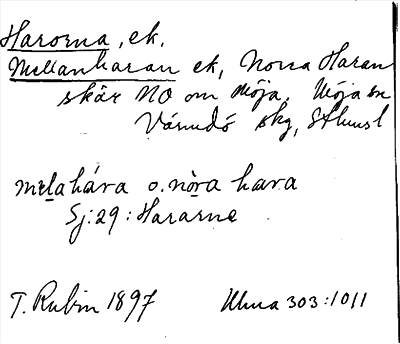 Hararna, ek.
Mellanharan ek, Norra Haran
skär NO om Möja. Möja sn
Värmdö skg, Sthmsl
mɛlahára o. nòra hara
Sj: 29: Hararne
T. Rubin 1897 Uma 303:1011